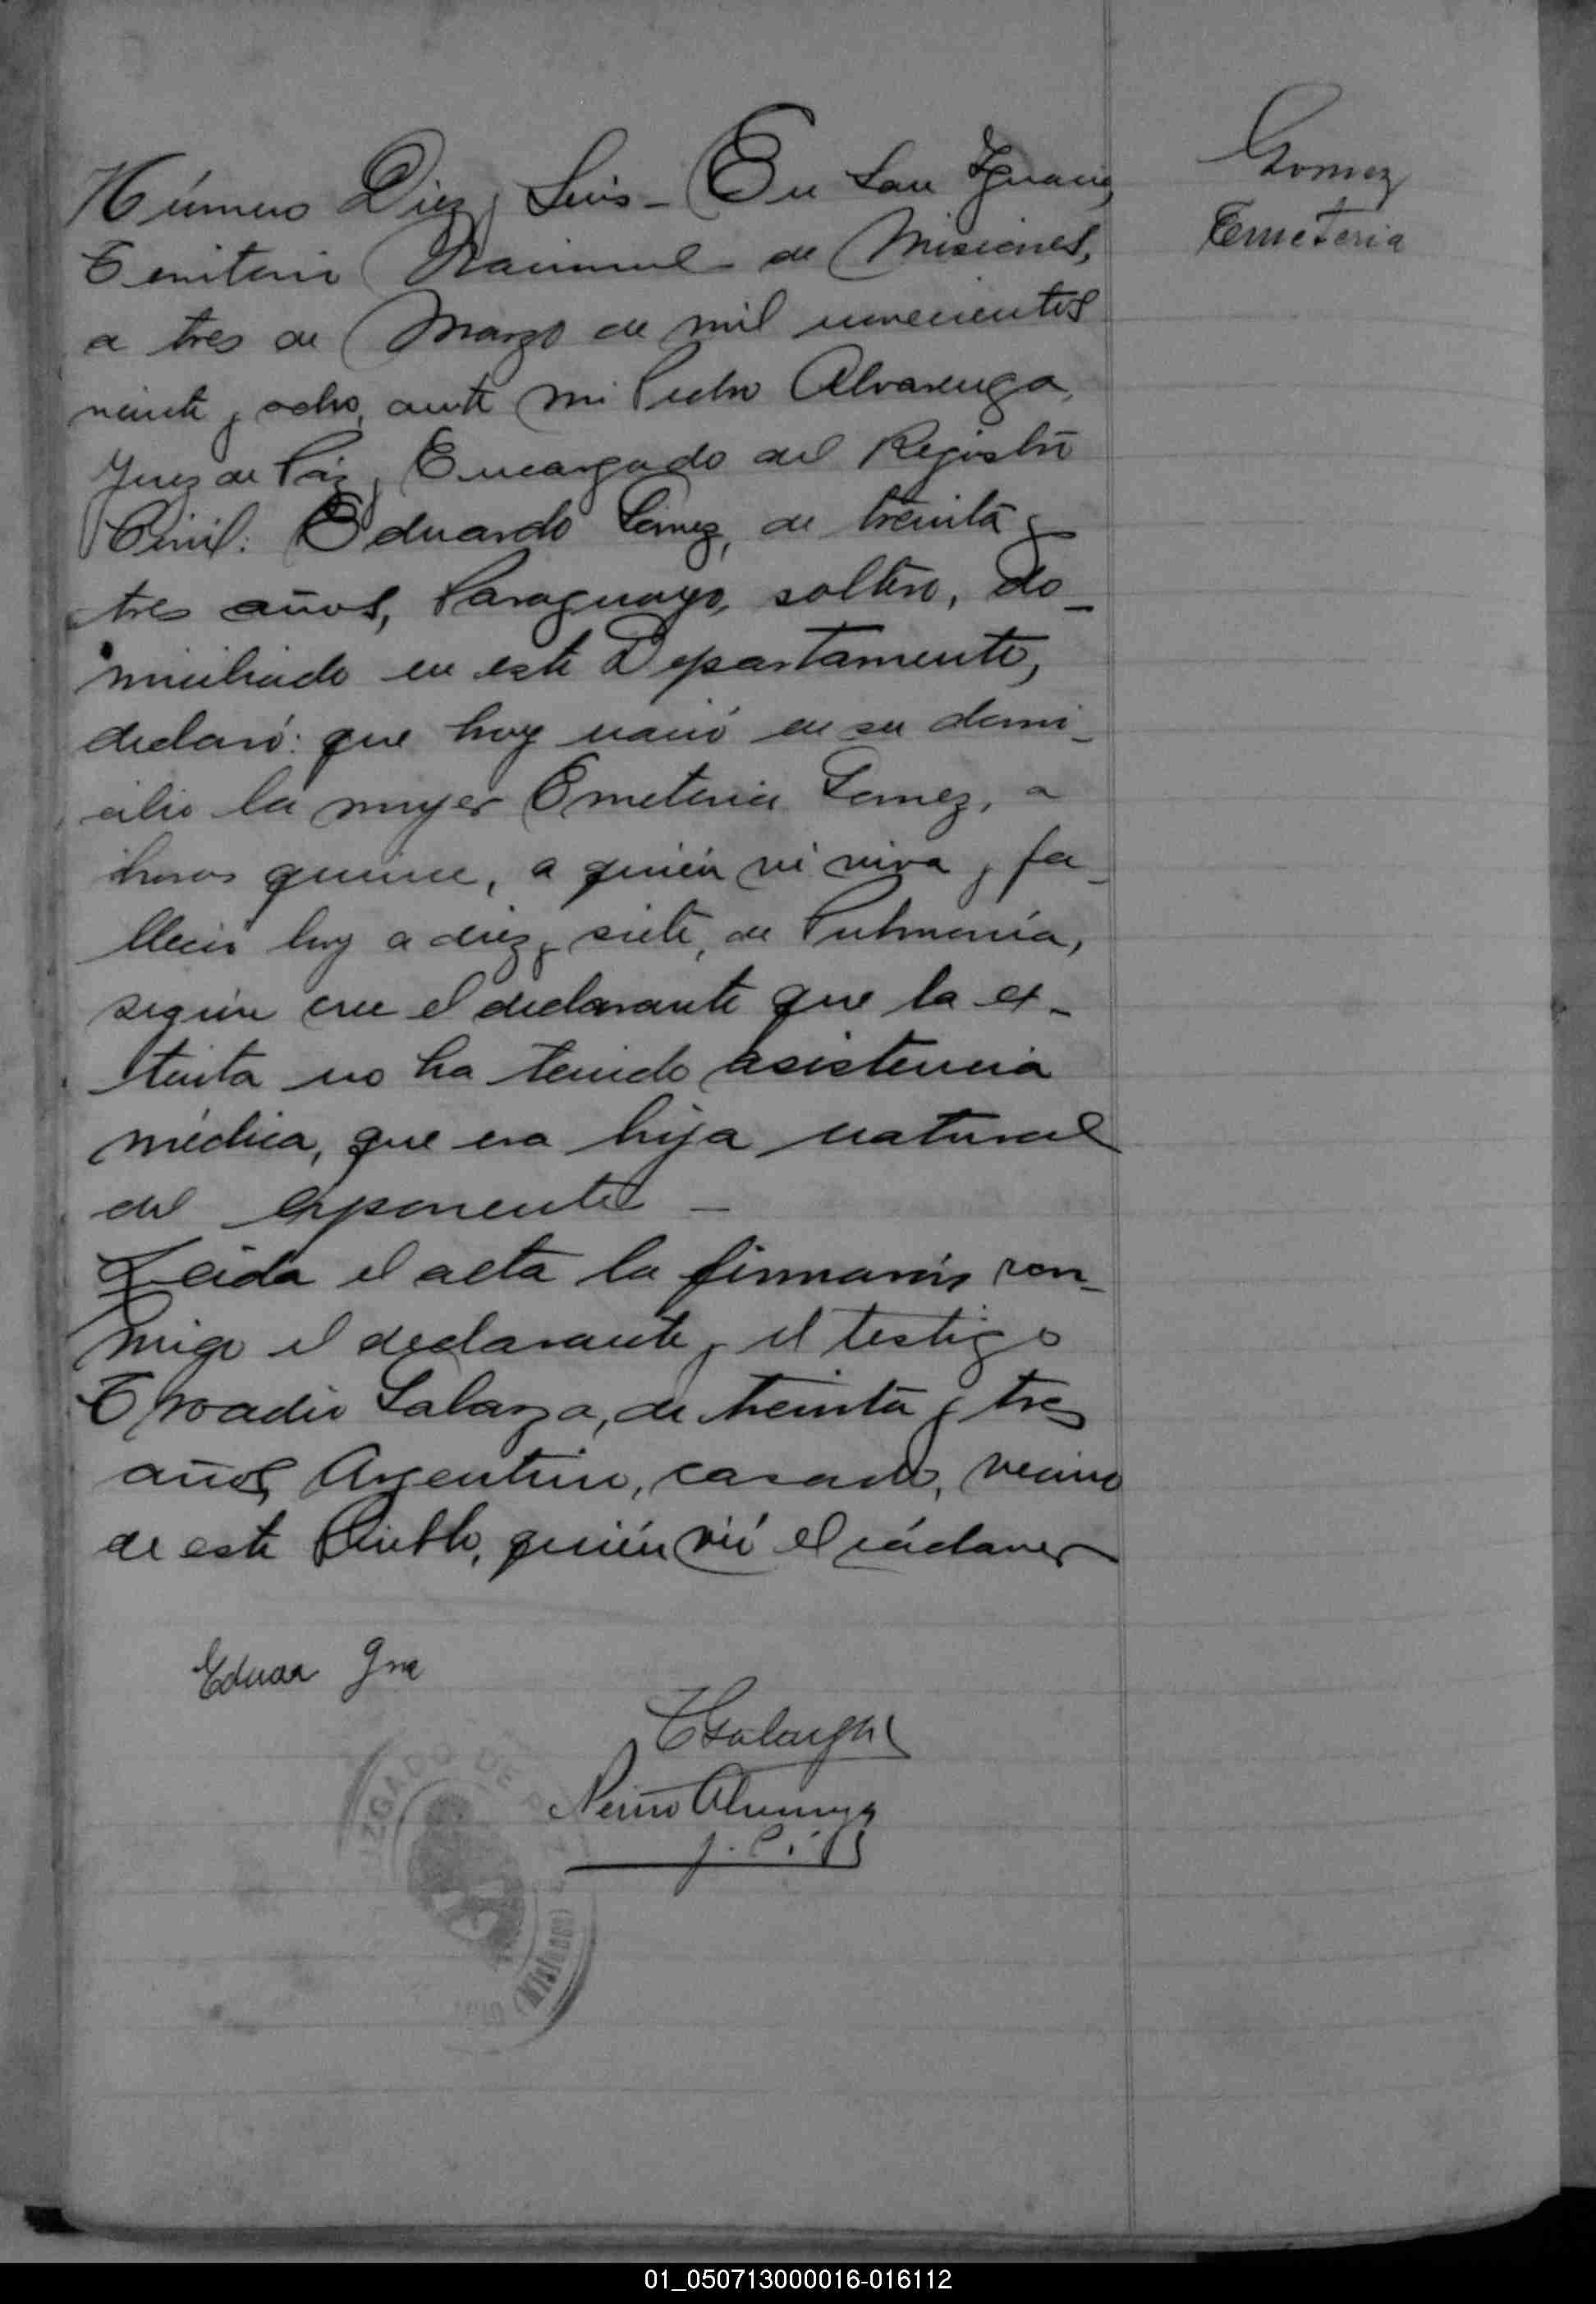 Gomez
Emeteria
Número Diez y Seis - En San Ignacio,
Territorio Nacional de Misiones,
a tres de Marzo de mil novecientos
veinte y ocho, ante mi Pedro Alvarenga,
Juez de Páz y Encargado del Registro
Civil: Eduardo Gómez, de treinta y
tres años, Paraguayo, soltero, do-
miciliado en este Departamento,
declaró: que hoy nació en su domi-
cilio la mujer Emeteria Gomez, a
horas quince, a quién ví viva y fa-
lleció hoy a diez y siete, de Pulmonía,
según cree el declarante que la ex-
tinta no ha tenido asistencia
médica, que era hija natural
del exponente -
Leída el acta la firmaron con-
migo el declarante y el testigo
Troadio Salarza, de treinta y tres
años, Argentino, casado, vecino
de este Pueblo, quién vió el cádaver
Eduar
Pedro Alvarenga
J. P.
JUZGADO DE PAZ
(Misiones)
01_050713000016-016112